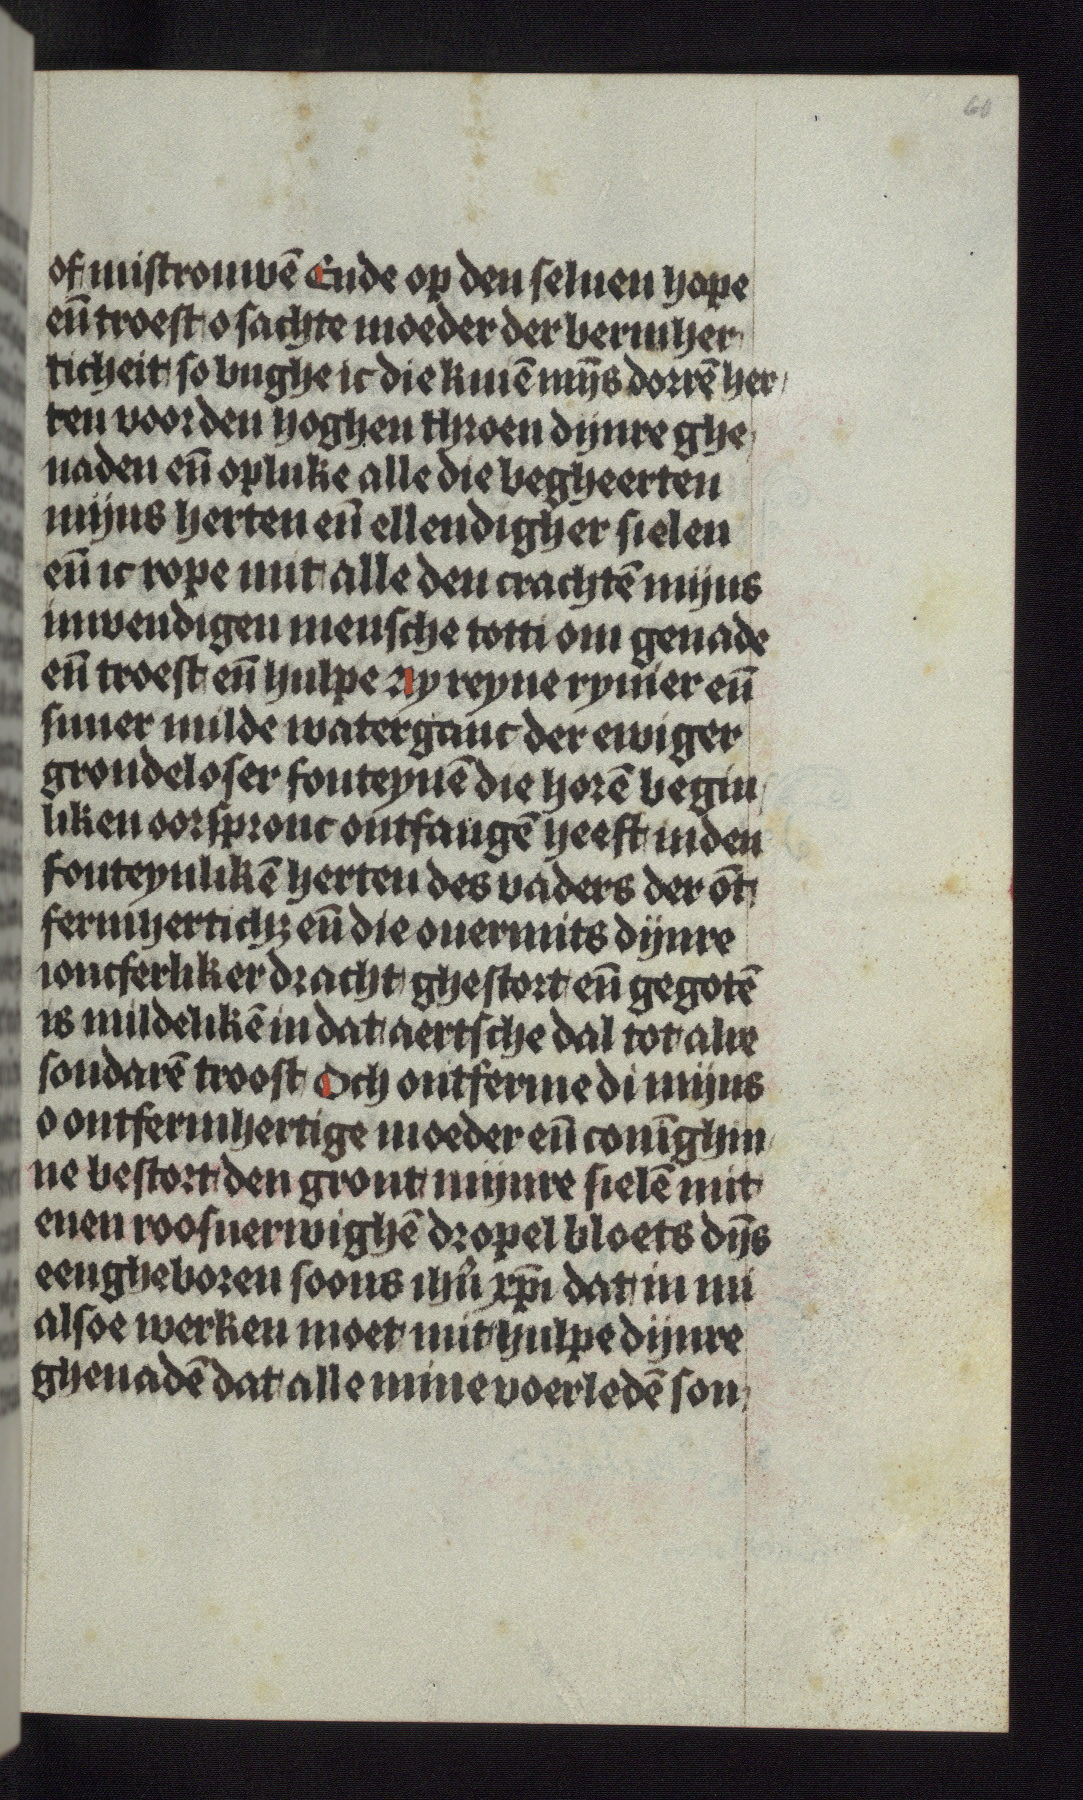 60
of mistrouwē Ende op den seluen hope
en̄ troest o sachte moeder der bermher
ticheit so bughe ic die knıē mȳs dorrē her
ten voor den hoghen throen dijnre ghe
naden en̄ opluke alle die begheerten
mijns herten en̄ ellendigher sielen
en̄ ic rope mit alle den crachtē mijns
inwendigen mensche totti om genade
en̄ troest en̄ hulpe Ay reyne rymier en̄
suuer milde watergauc der ewiger
grondeloser fonteynē die horē begin
liken oorspronc ontfangē heeft inden
fonteynlikē herten des vaders der ōt
fermhertichꝫ en̄ die ouermits dijnre
ioncferliker dracht ghestort en̄ gegotē
is mildelikē in dat aertsche dal tot alre
sondarē troost Och ontferme di mijns
o ontfermhertige moeder en̄ conīghin
ne bestort den gront mijnre sielē mit
enen roosuerwighē dropel bloets dȳs
eengheboren soons ihū xp̄i dat in mi
alsoe werken moet mit hulpe dijnre
ghenadē dat alle mine voerledē son